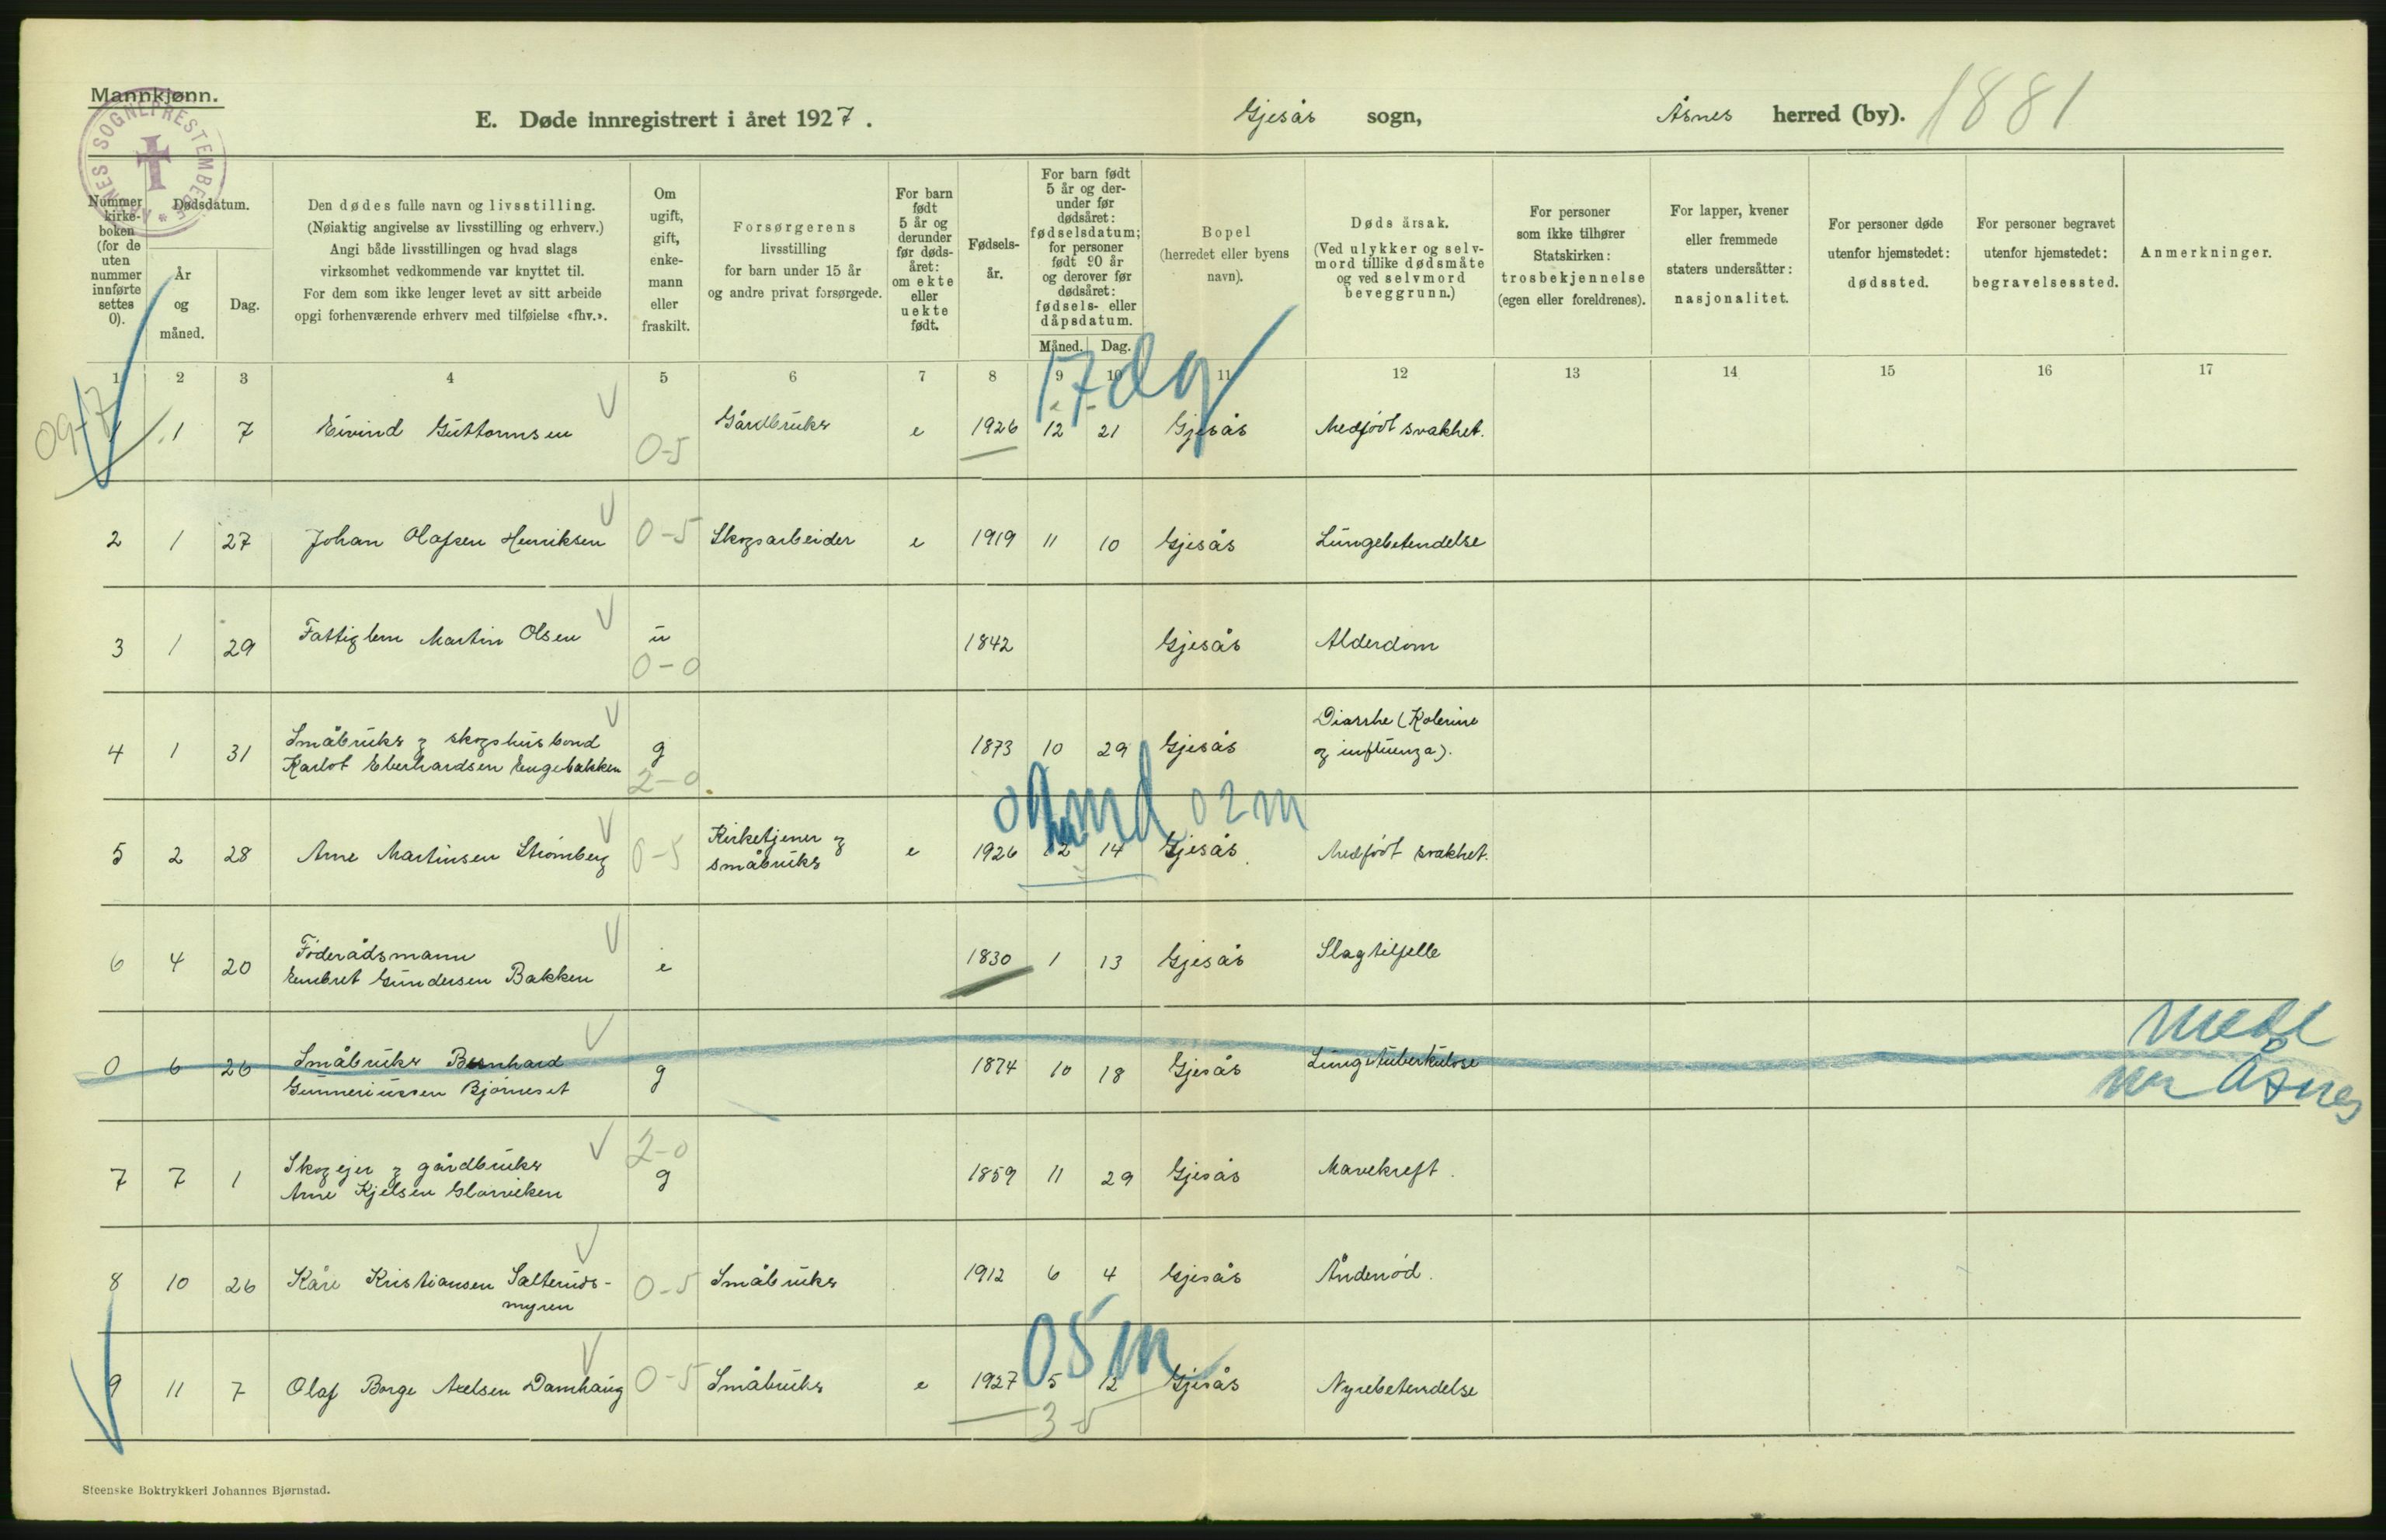 Mannkjønn.
E. Døde innregistrert i året 1927. Gjesås sogn, Åsnes herred (by). 1881
ÅSNES SOGNEPRESTEMBEDE
Nummer
kirke-
boken
(for de
uten
nummer
innførte
settes
0).
Dødsdatum.
År
og
måned.
Dag.
Den dødes fulle navn og livsstilling.
(Nøiaktig angivelse av livsstilling og erhverv.)
Angi både livsstillingen og hvad slags
virksomhet vedkommende var knyttet til.
For dem som ikke lenger levet av sitt arbeide
opgi forhenværende erhverv med tilføielse «fhv.».
Om
ugift,
gift,
enke-
mann
eller
fraskilt.
Forsørgerens
livsstilling
for barn under 15 år
og andre privat forsørgede.
For barn
født
5 år og
derunder
før døds-
året:
om ekte
eller
uekte
født.
Fødsels-
år.
For barn født
5 år og der-
under før
dødsåret:
fødselsdatum;
for personer
født 90 år
og derover før
dødsåret:
fødsels- eller
dåpsdatum.
Måned. Dag.
Bopel
(herredet eller byens
navn).
Dødsårsak.
(Ved ulykker og selv-
mord tillike dødsmåte
og ved selvmord
beveggrunn.)
For personer
som ikke tilhører
Statskirken:
trosbekjennelse
(egen eller foreldrenes).
For lapper, kvener
eller fremmede
staters undersåtter:
nasjonalitet.
For personer døde
utenfor hjemstedet:
dødssted.
For personer begravet
utenfor hjemstedet:
begravelsessted.
Anmerkninger.
1 2 3 4 5 6 7 8 9 10 11 12 13 14 15 16 17
17 dg
09-7
1 1 7 Eivind Guttormsen 0-5 Gårdbruker e 1926 12 21 Gjesås Medfødt svakhet.
2 1 27 Johan Olafsen Henriksen 0-5 Skogsarbeider e 1919 11 10 Gjesås Lungebetendelse
3 1 29 Fattiglem Martin Olsen u 1842 Gjesås Alderdom
0-0
4 1 31 Småbruker og skogshusbond g 1873 10 29 Gjesås Diarrhe (Kolerine
Karlot Eberhardsen Engebakken 2-0 og influenza).
02 m
5 2 28 Arne Martinsen Strömberg 0-5 Kirketjener og e 1926 12 14 Gjesås Medfødt svakhet.
småbruker
6 4 20 Föderådsmann e 1830 1 13 Gjesås Slagtilfelle
Embret Gundersen Bakken
0 6 26 Småbruker Bernhard g 1874 10 18 Gjesås Lungetuberkulose
Gunneriussen Björneset
Åsnes
7 7 1 Skogejer og gårdbruker 2-0 g 1859 11 29 Gjesås Mavekreft.
Arne Kjelsen
8 10 26 Kåre Kristiansen Salteruds- 0-5 Småbruker 1912 6 4 Gjesås Åndenöd.
myren
05 m
9 11 7 Olaf Borge Axelsen Damhaug 0-5 Småbruker e 1927 5 12 Gjesås Nyrebetendelse
3-5
Steenske Boktrykkeri Johannes Bjørnstad.